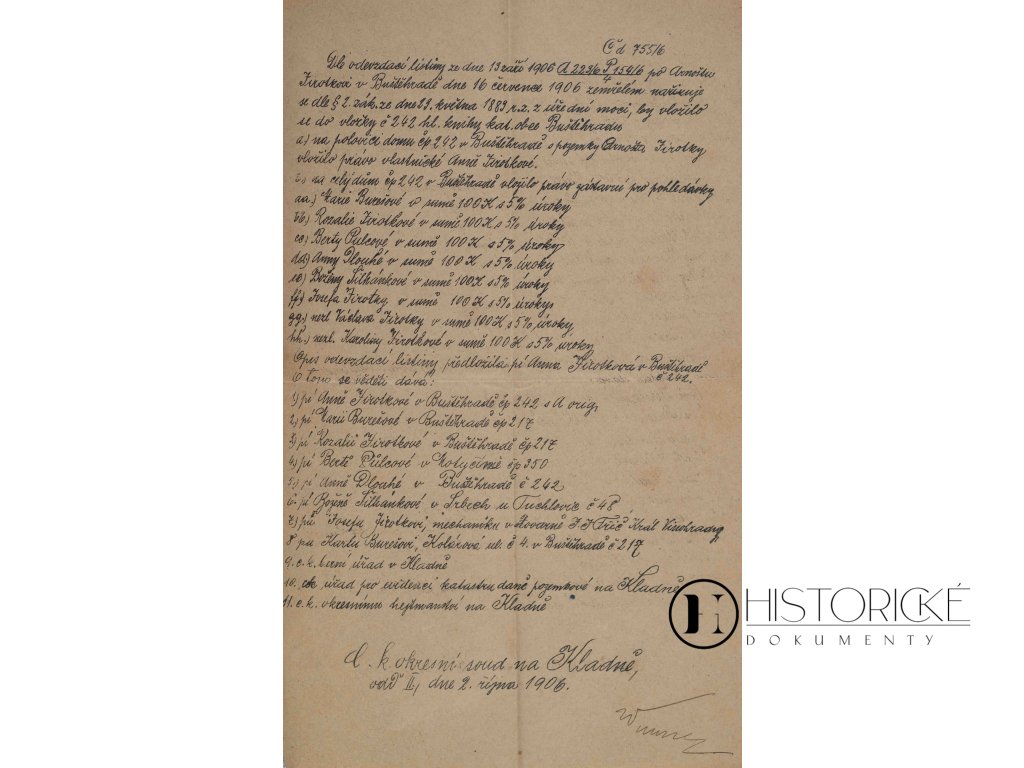 Čd 755/6
Dle odevzdací listiny ze dne 13 září 1906 A 223/6 P 154/6 po Arnoštu
Jirotkovi v Buštěhradě dne 16 července 1906 zemřelém nařizuje
se dle § 2. zák. ze dne 23. května 1883 r.z. z úřední moci, by vložilo
se do vložky č 242 hl. knihy kat. obce Buštěhradu
a) na polovici domu čp 242 v Buštěhradě s pozemky Arnošta Jirotky
vložilo právo vlastnické Anně Jirotkové.
b) na celý dům čp 242 v Buštěhradě vložilo právo zástavné pro pohledávky
aa.) Marie Burešové v sumě 100 K s 5% úroky
bb.) Rozalie Jirotkové v sumě 100 K s 5% úroky
cc) Berty Pulcové v sumě 100 K s 5% úroky
dd) Anny Dlouhé v sumě 100 K s 5% úroky
ee) Boženy Šilhánkové v sumě 100 K s 5% úroky
ff) Josefa Jirotky v sumě 100 K s 5% úroky
gg.) nezl Václava Jirotky v sumě 100 K s 5% úroky
hh.) nezl. Karoliny Jirotkové v sumě 100 K s 5% úroky
Opis odevzdací listiny předložila pí Anna Jirotková v Buštěhradě
č 242.
O tom se věděti dává:
1) pí Anně Jirotkové v Buštěhradě čp 242 s A orig.
2) pí Marii Burešové v Buštěhradě čp 217
3) pí Rozalii Jirotkové v Buštěhradě čp 217
4) pí Bertě Pulcové v Motyčíně čp 350
5) pí Anně Dlouhé v Buštěhradě č 242
6. pí Boženě Šilhánkové v Srbech u Tuchlovic č 48
7) pu Josefu Jirotkovi, mechaniku v Král Vinohrady
8 pu. Karlu Burešovi, Kolárová ul. č 4. v Buštěhradě č 217
9. c. k. berní úřad v Kladně
10. ck úřad pro evidenci katastru daně pozemkové na Kladně
11. c. k. okresnímu hejtmanství na Kladně
C. k. okresní soud na Kladně,
odd II, dne 2. října 1906.
HISTORICKÉ
DOKUMENTY